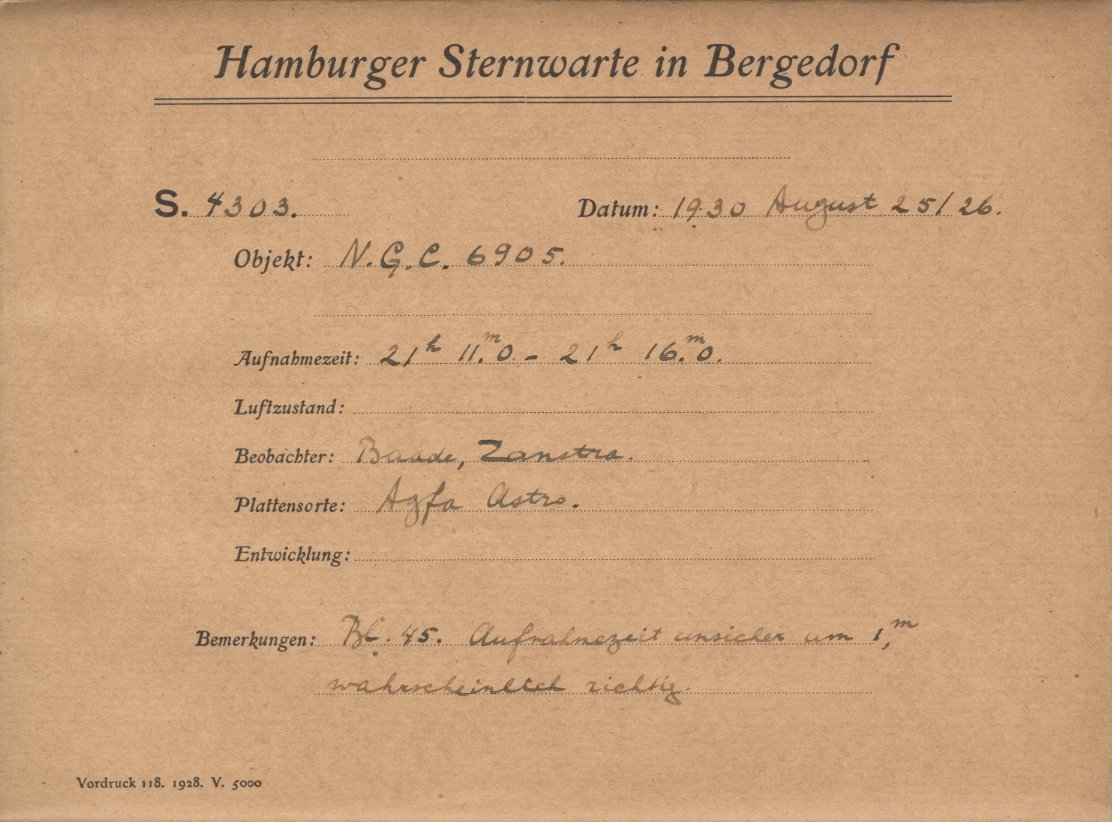 Hamburger Sternwarte in Bergedorf
S. 4303. Datum: 1930 August 25/26.
Objekt: N.G.C. 6905.
Aufnahmezeit: 21h 11.m0 - 21h 16.m0.
Luftzustand:
Beobachter: Baade, Zanstra.
Plattensorte: Agfa Astro.
Entwicklung:
Bemerkungen: Bl. 45. Aufnahmezeit unsicher um 1m,
wahrscheinlich richtig.
Vordruck 118. 1928. V. 5000